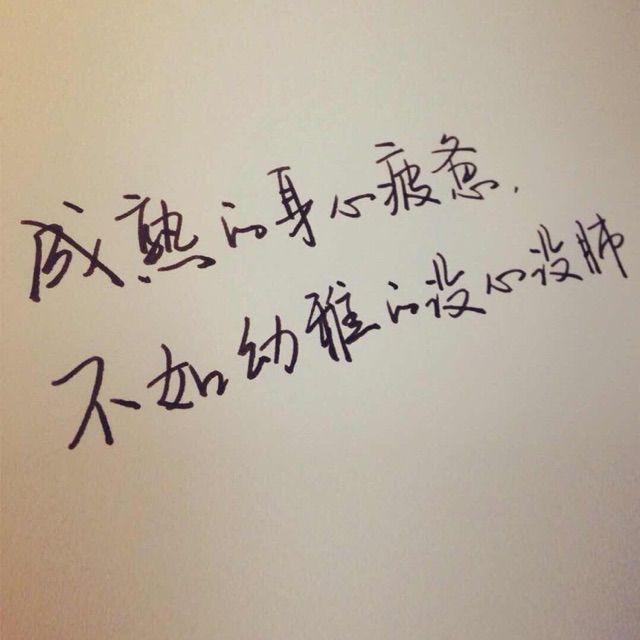 成熟的身心疲惫，
不如幼稚的没心没肺